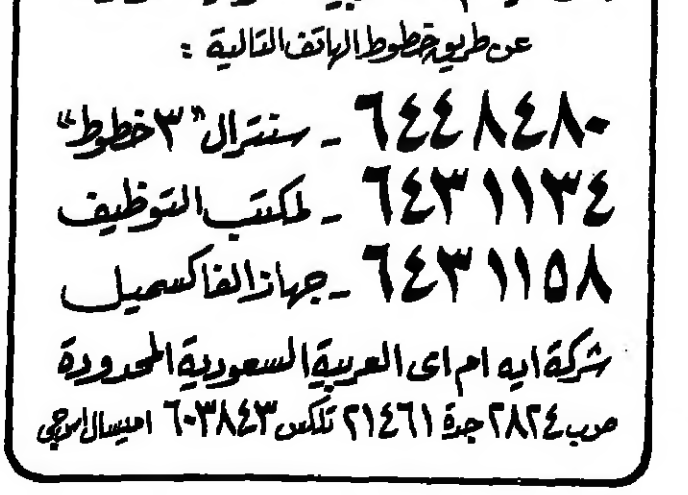 عن طريق خطوط الهاتف التالية :
٦٤٤٨٤٨٠ - سنترال "٣ خطوط"
٦٤٣١١٣٤ - لمكتب التوظيف
٦٤٣١١٥٨ - جهاز الفاكسميل
شركة ايه ام اى العربية السعودية المحدودة
ص ب ٢٨٢٤ جدة ٢١٤٦١ تلكس ٦٠٣٨٤٣